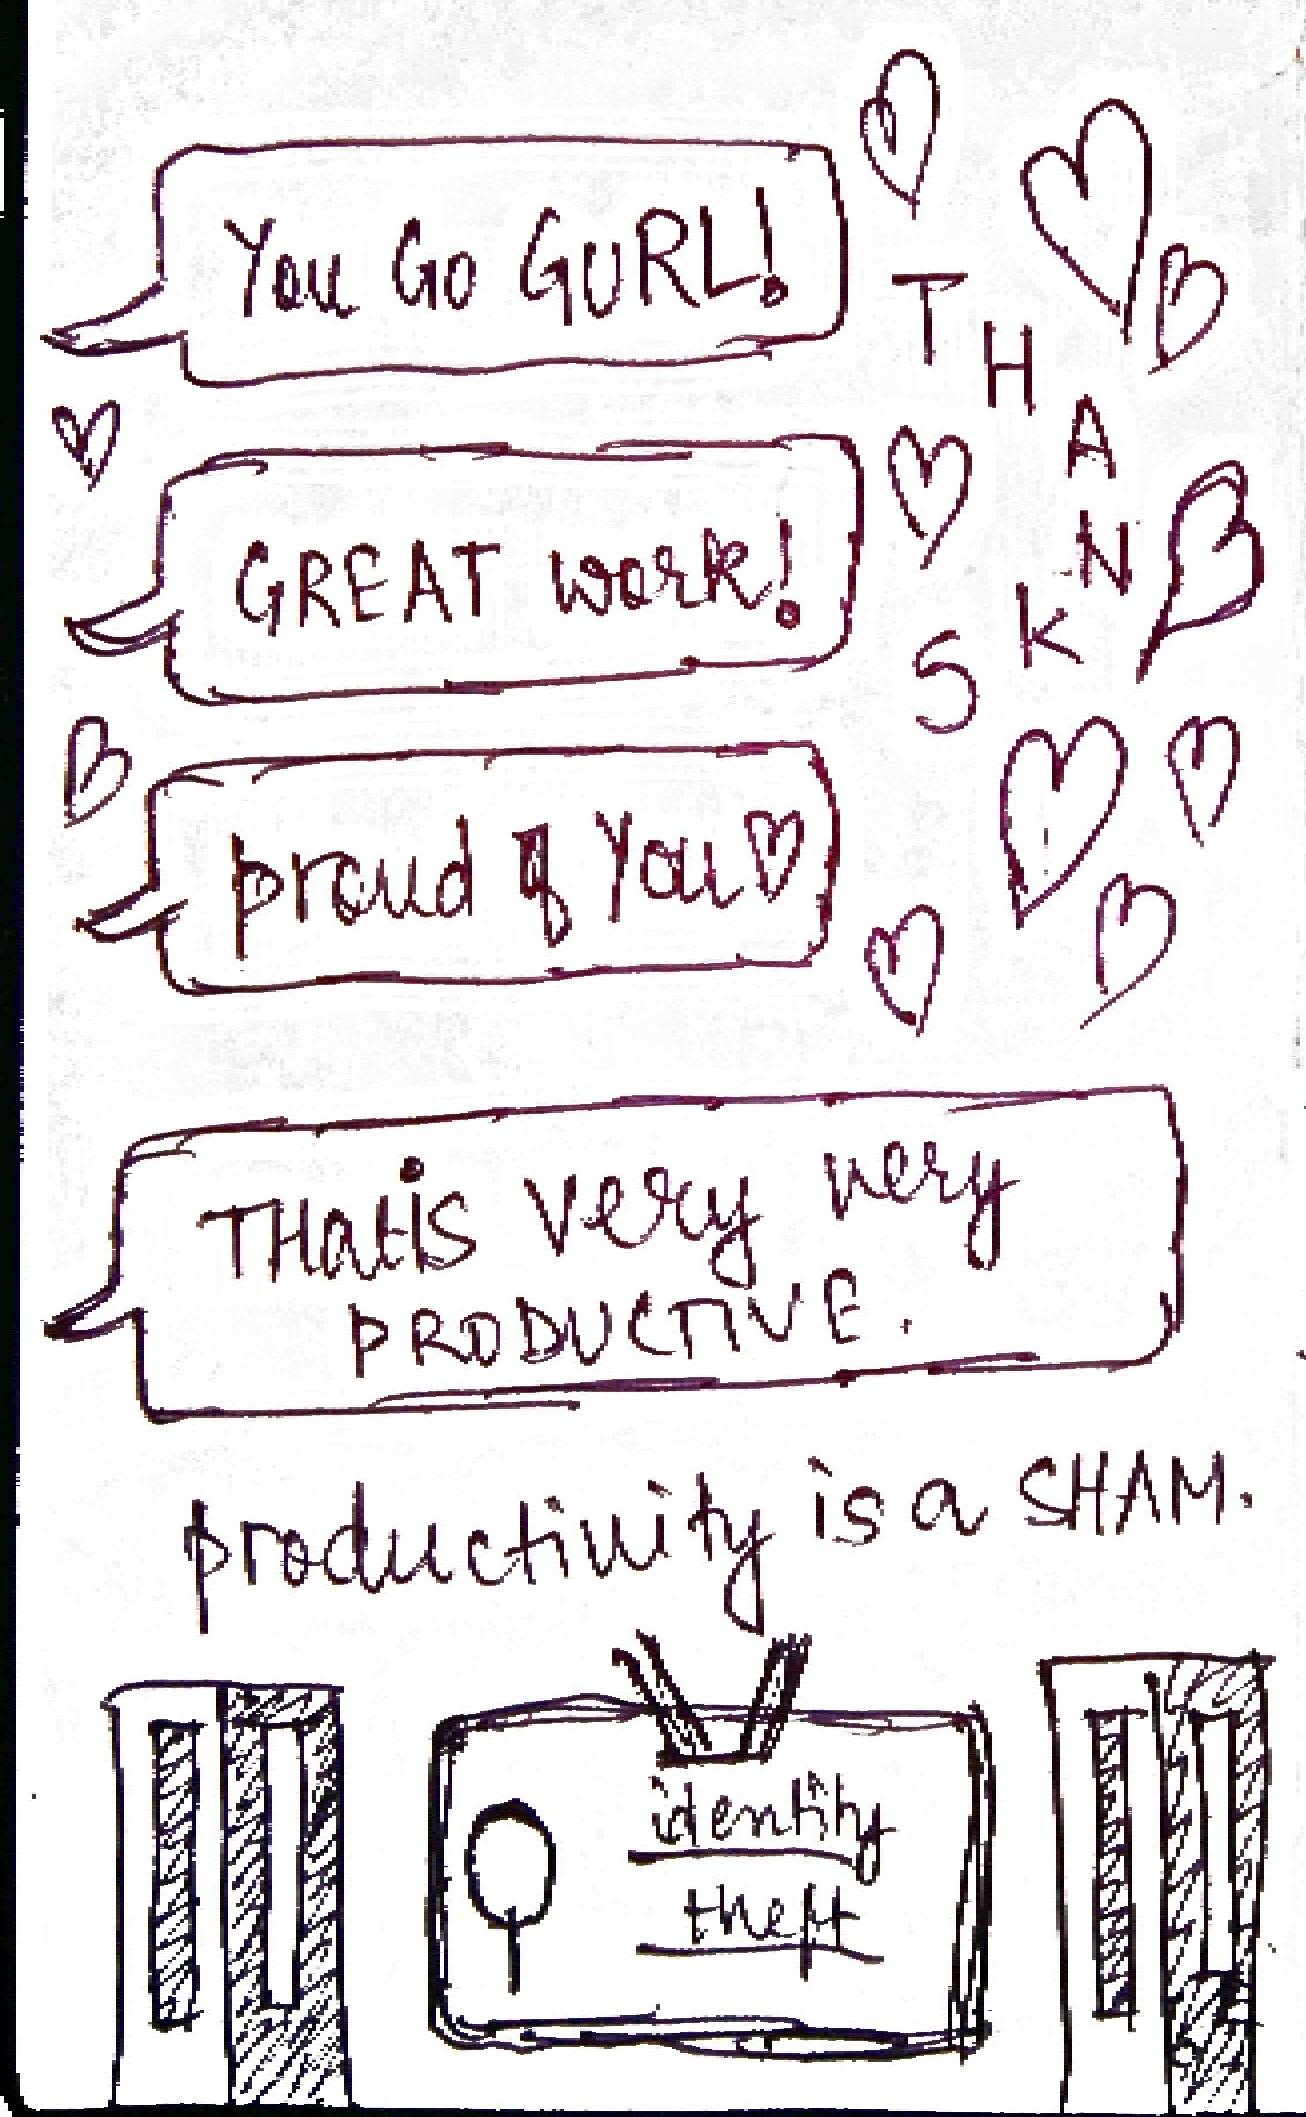 You Go GURL!
THANKS
GREAT work!
proud of You
THatis very very
PRODUCTIVE.
productivity is a SHAM.
identity
theft